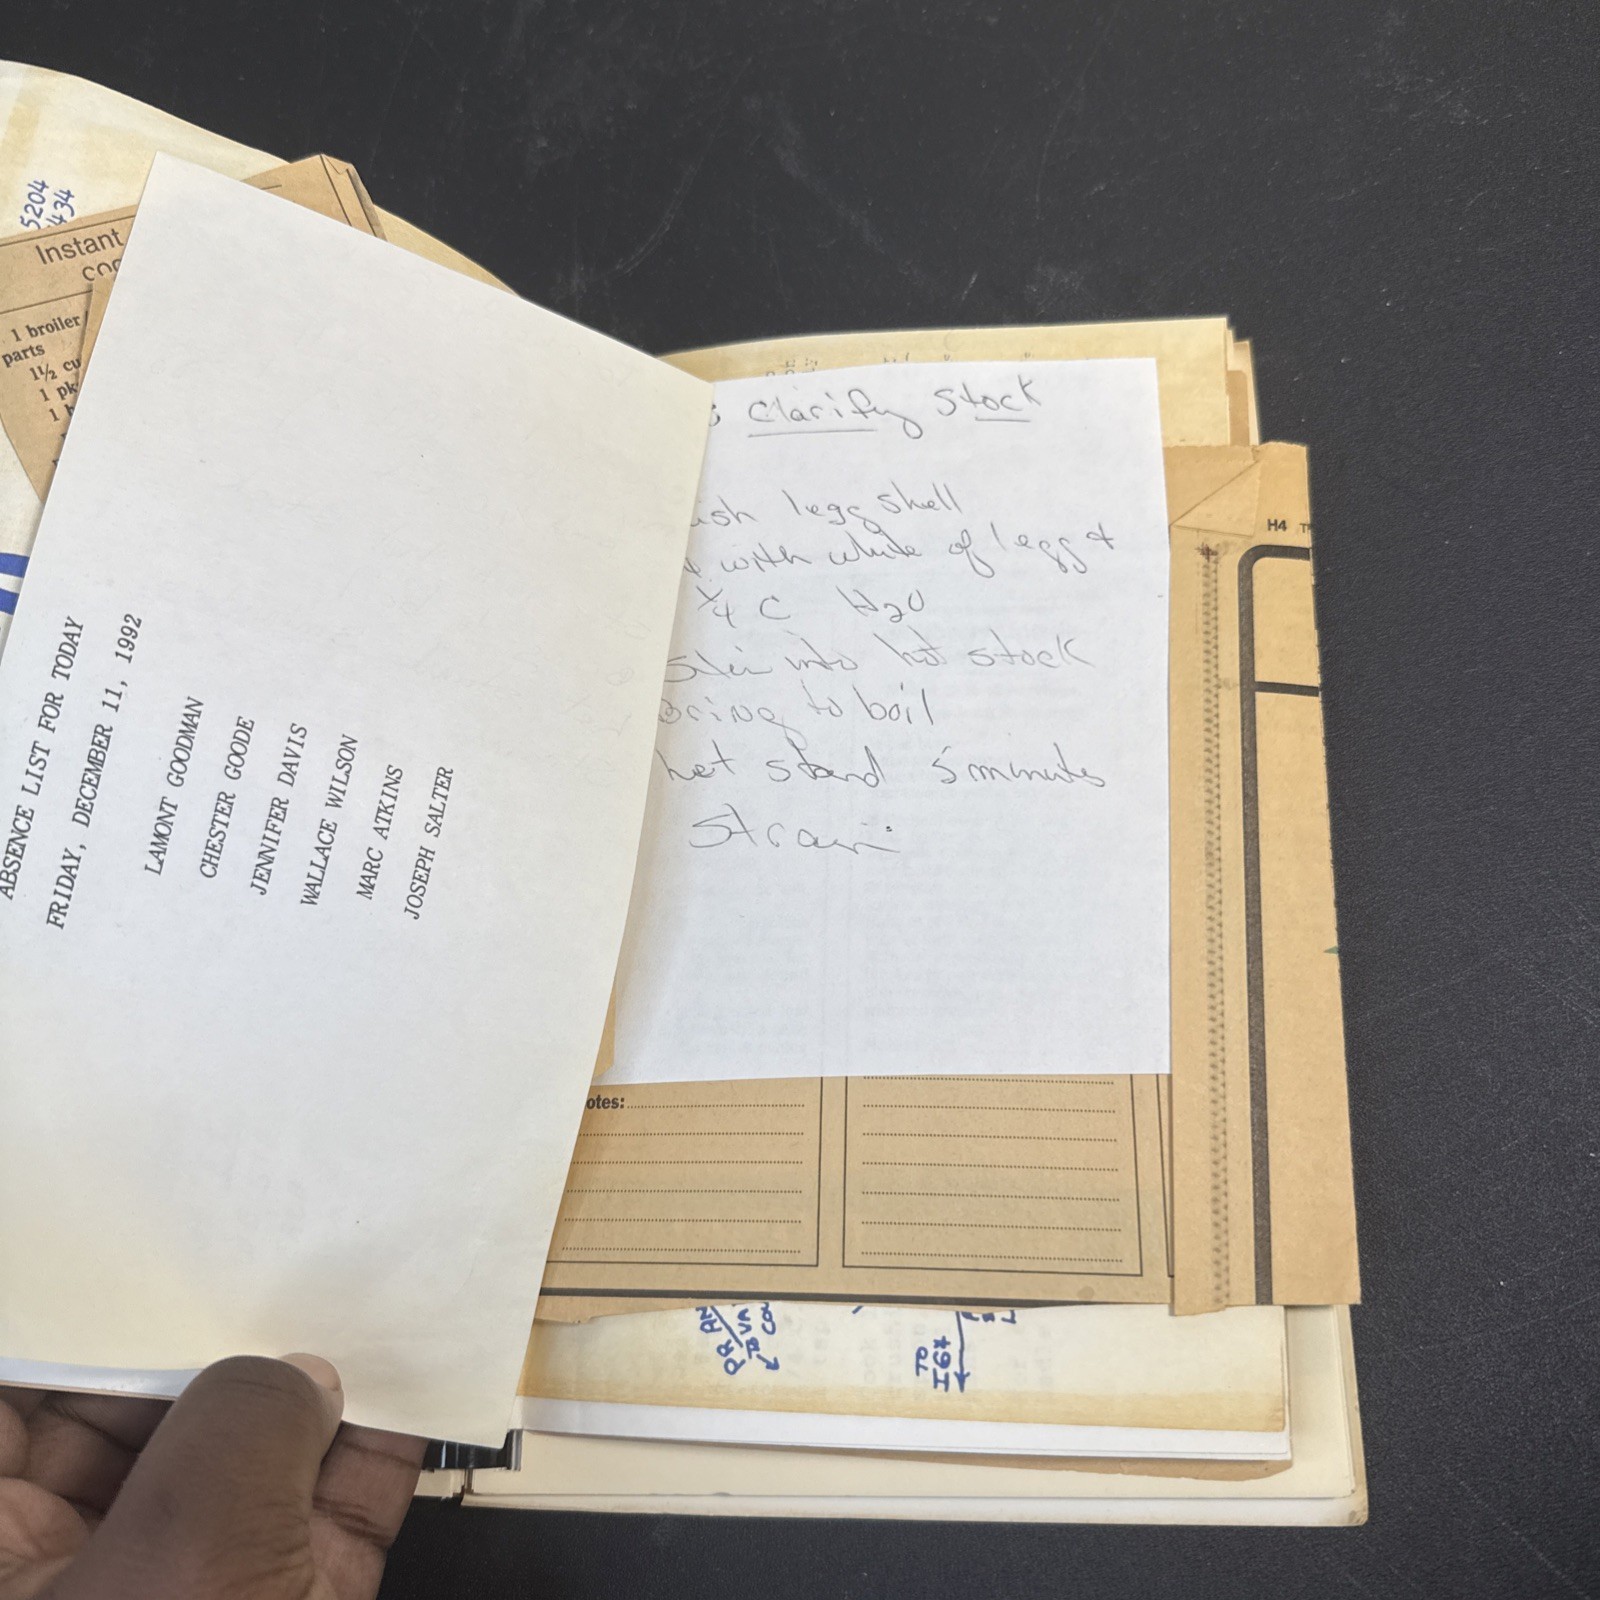 5204
434
Instant
1 broiler
parts
1½ cu
1 pk
1
ABSENCE LIST FOR TODAY
FRIDAY, DECEMBER 11, 1992
LAMONT GOODMAN
CHESTER GOODE
JENNIFER DAVIS
WALLACE WILSON
MARC ATKINS
JOSEPH SALTER
Clarify Stock
ish 1 egg shell
with white of 1 egg +
¼ C H2O
into hot stock
Bring to boil
Let stand 5 minutes
Strain
H4
otes:
TO
I64